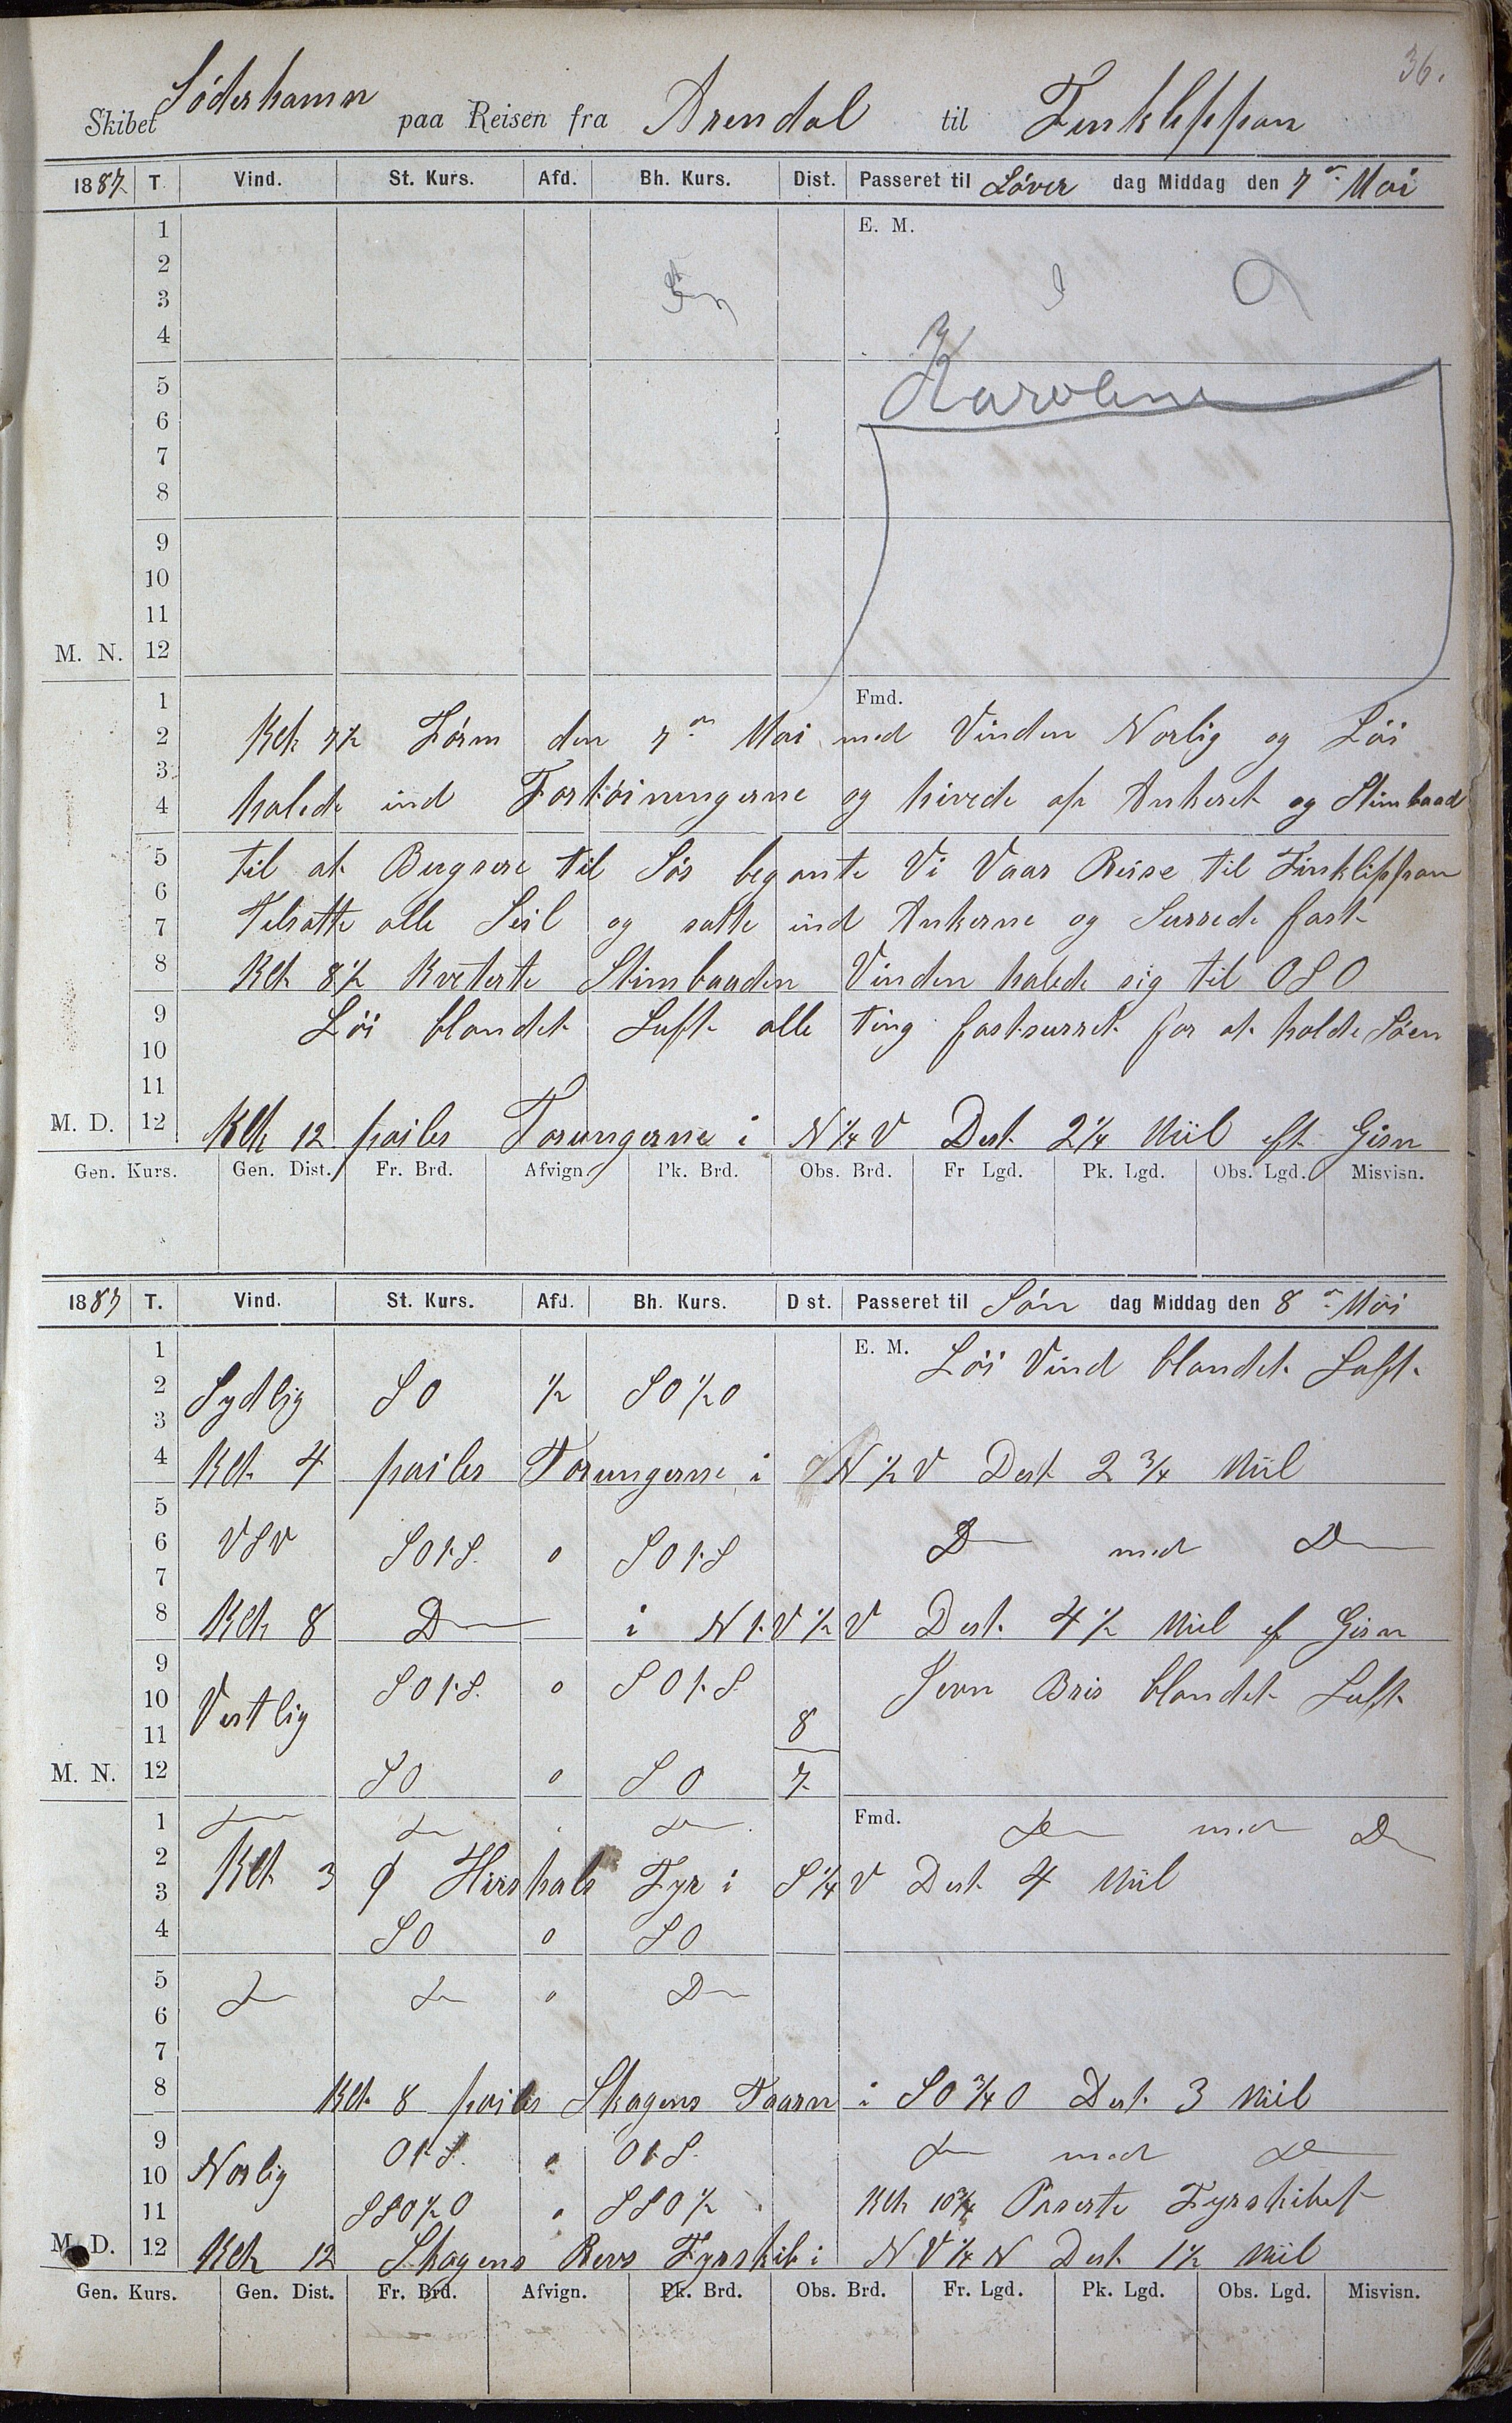 36.
Skibet Söderhamn paa Reisen fra Arendal til Finklippan
1887 T. Vind. St. Kurs. Afd. Bh. Kurs. Dist. Passeret til Löver dag Middag den 7de Mai
1 E. M.
2
3
4
Karoline
5
6
7
8
9
10
11
M. N. 12
1 Fmd.
2 Klk 7½ Form den 7de Mai med Vinden Norlig og Löi
3
4 halede ind Fortöiningerne og hivede op Ankeret og Stimbaad
5 til at Bugsere til Sös begynte Vi Vaar Reise til Finklippan
6
7 Tilsatte alle Seil og satte ind Ankerne og Surrede fast
8 Klk 8½ Kviterte Stimbaaden Vinden halede sig til OSO
9 Löi blandet Luft alle ting fastsurret for at holde Söen
10
11
M. D. 12 Klk 12 peiles Torungerne i N¼V Dist. 2¼ Miil eft Gisn
Gen. Kurs. Gen. Dist. Fr. Brd. Afvign. Pk. Brd. Obs. Brd. Fr. Lgd. Pk. Lgd. Obs. Lgd. Misvisn.
1887 T. Vind. St. Kurs. Afd. Bh. Kurs. Dist. Passeret til Sön dag Middag den 8de Mai
1 E. M. Löi Vind blandet Luft
2 Sydlig SO ½ SO½O
3
4 Klk 4 peiles Torungerne i N½V Dist 2¾ Miil
5
6 VSV SOt.S. 0 SOt.S D med D
7
8 Klk 8 D i Nt.V½V Dist. 4½ Miil ef Gisn
9 SOt.S. 0 SOt.S Jevn Bris blandet Luft
10 Vestlig
11 8
M. N. 12 SO 0 SO 7
1 D D D Fmd. D med D
2 Klk 3 Hirshals Fyr i S¼V Dist. 4 Miil
3
4 SO 0 SO
5 D D 0 D
6
7
8 Klk 8 peiles Skagens Taarn i SO¾O Dist. 3 Miil
9 Ot.S. Ot.S. D med D
10 Norlig
11 SSO½O SSO½ Klk 10¾ Paserte Fyrskibet
M. D. 12 Klk 12 Skagens Revs Fyrskib i NV¼N Dist 1½ Miil
Gen. Kurs. Gen. Dist. Fr. Brd. Afvign. Pk. Brd. Obs. Brd. Fr. Lgd. Pk. Lgd. Obs. Lgd. Misvisn.